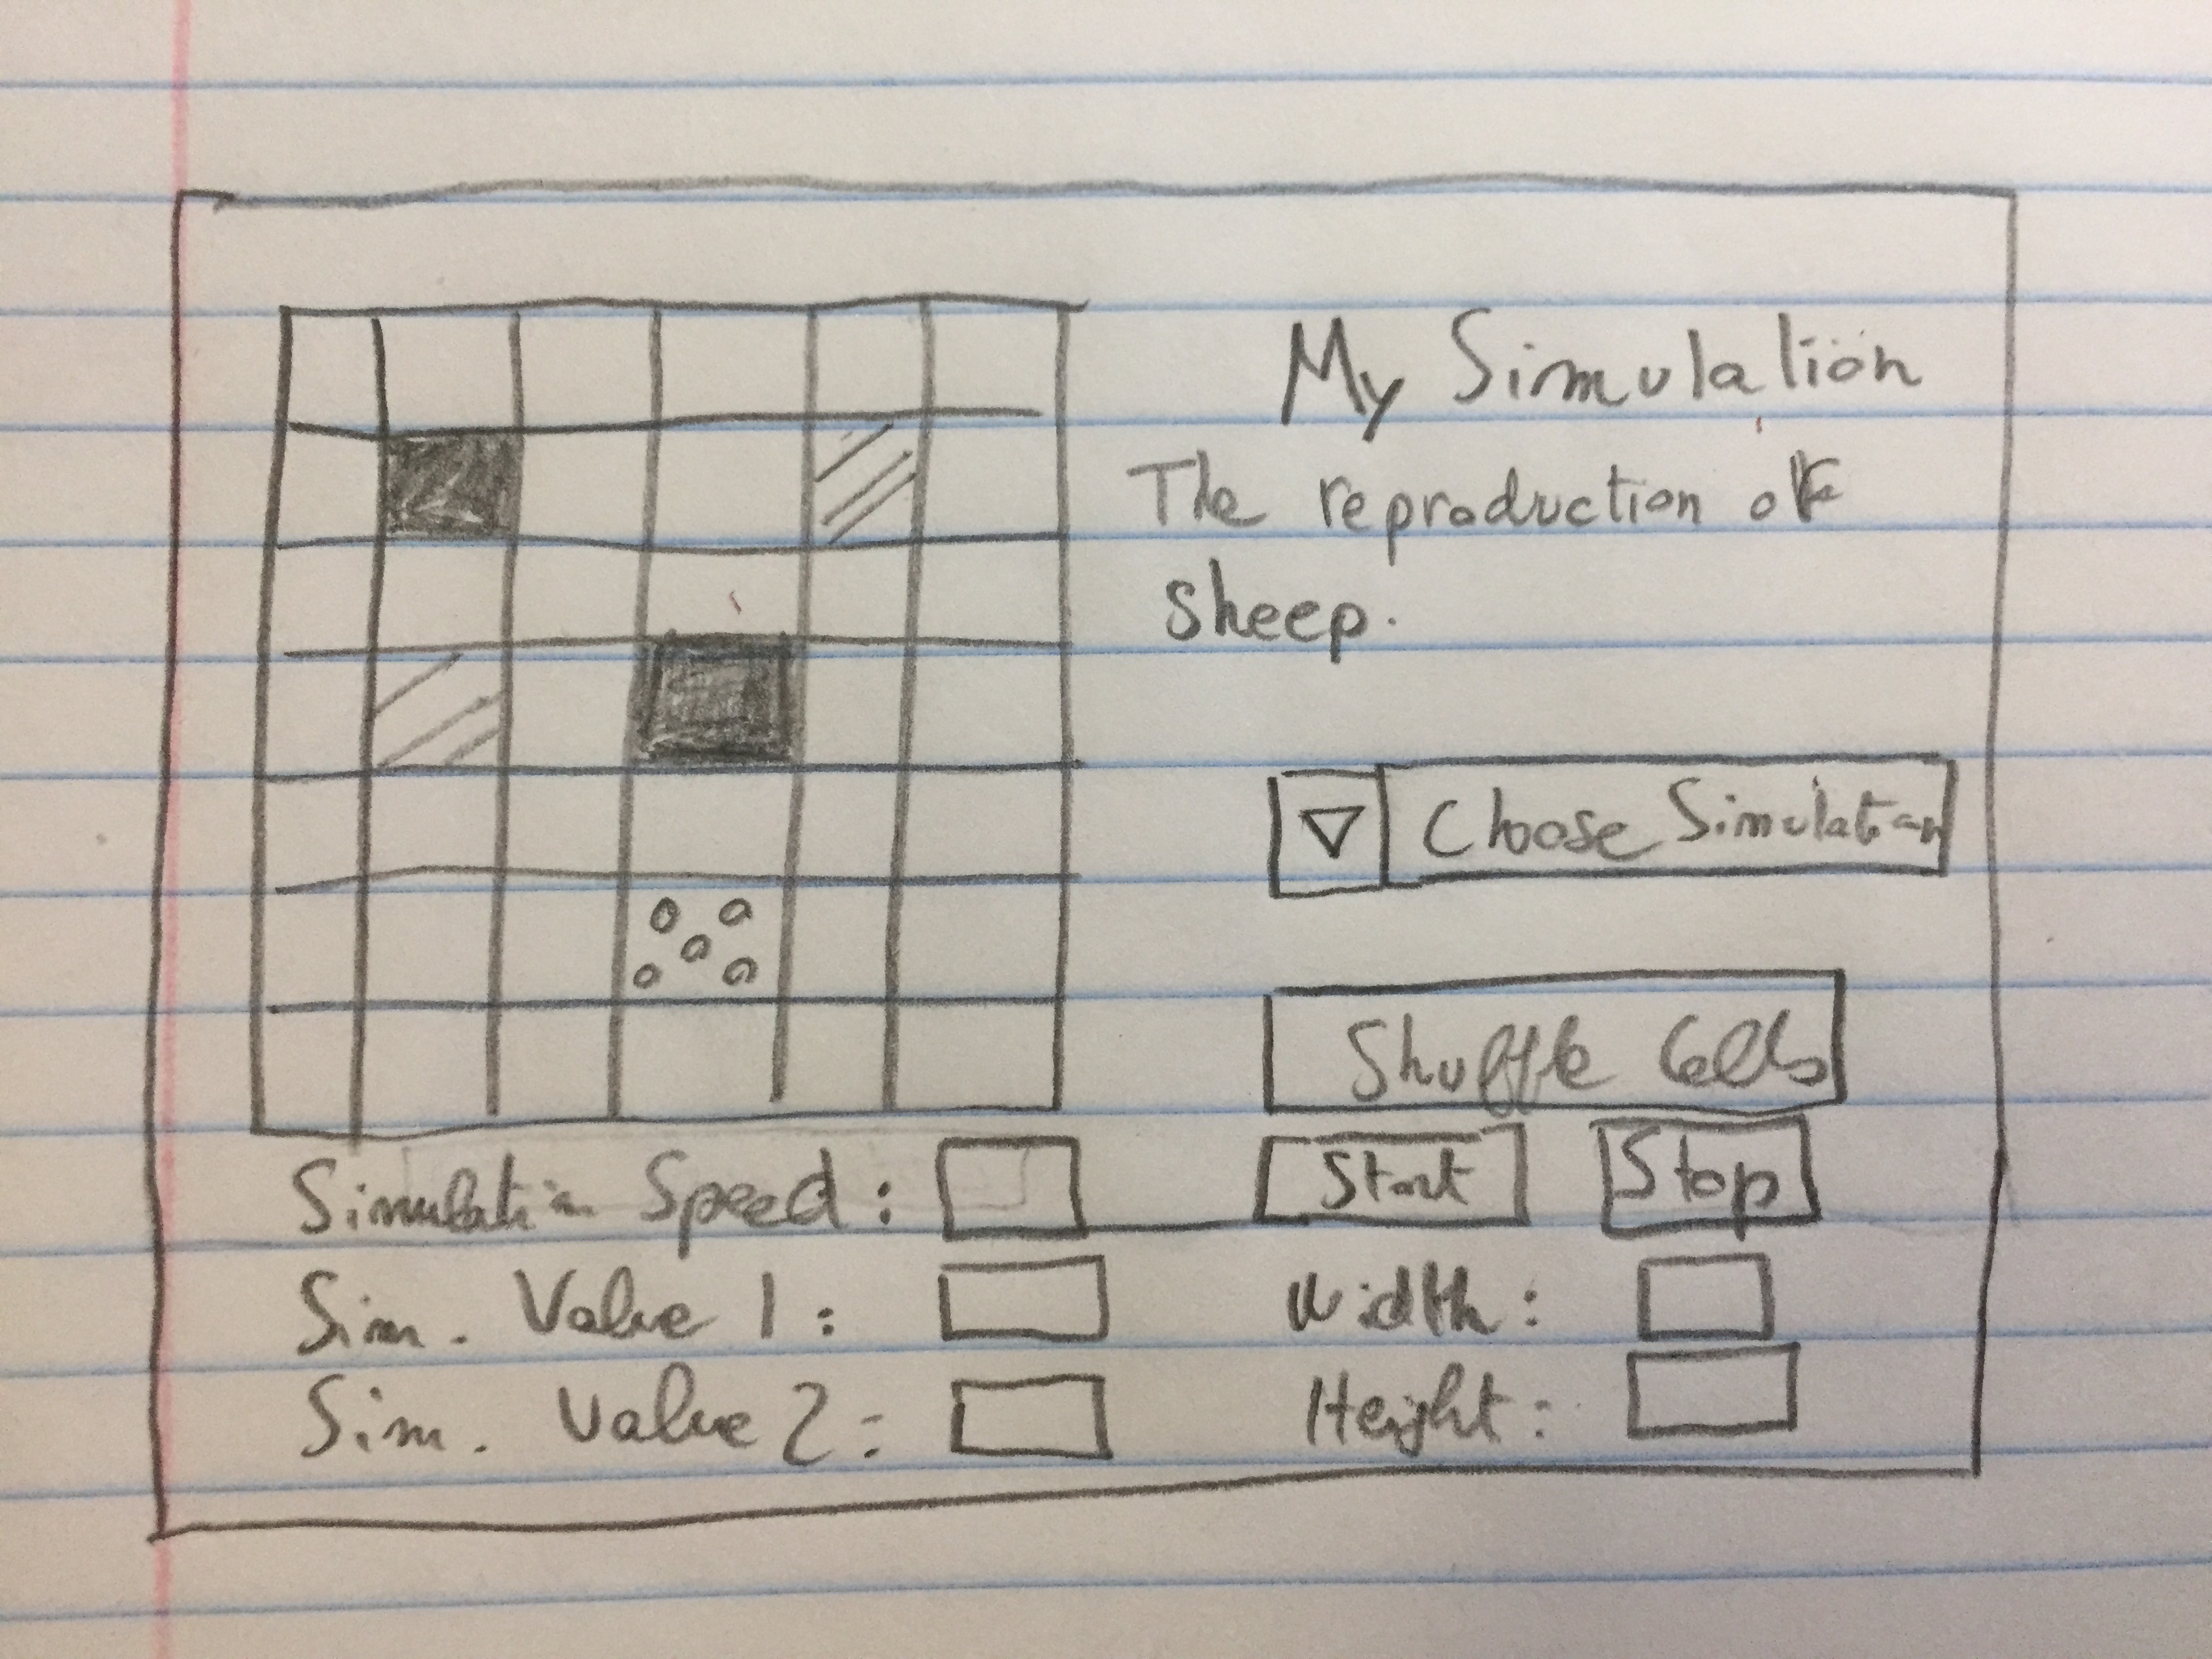 My Simulation
The reproduction of
sheep.
Choose Simulation
Shuffle Cells
Start Stop
Simulation Speed:
Sim. Value 1:
Width:
Sim. Value 2:
Height: